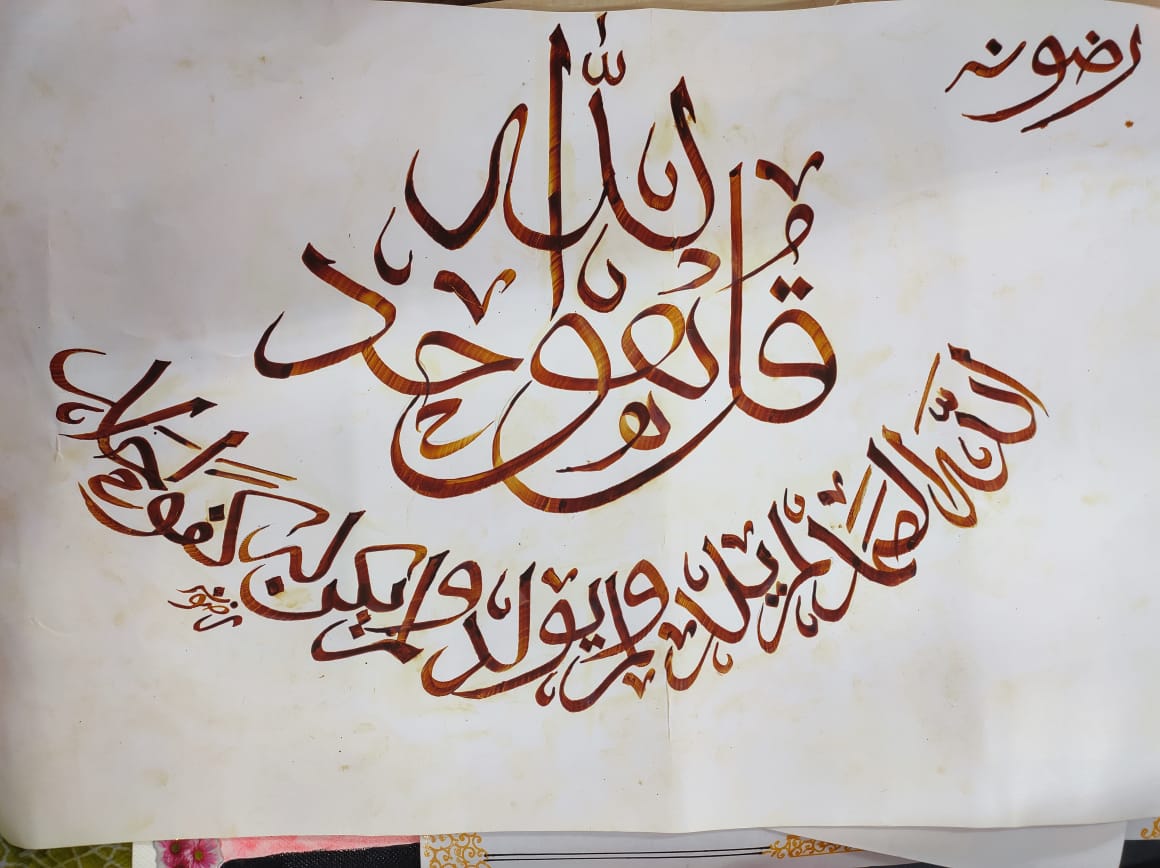 رضونہ
قل هو الله احد
الله الصمد لم يلد ولم يولد ولم يكن له كفوا احد
رضونہ